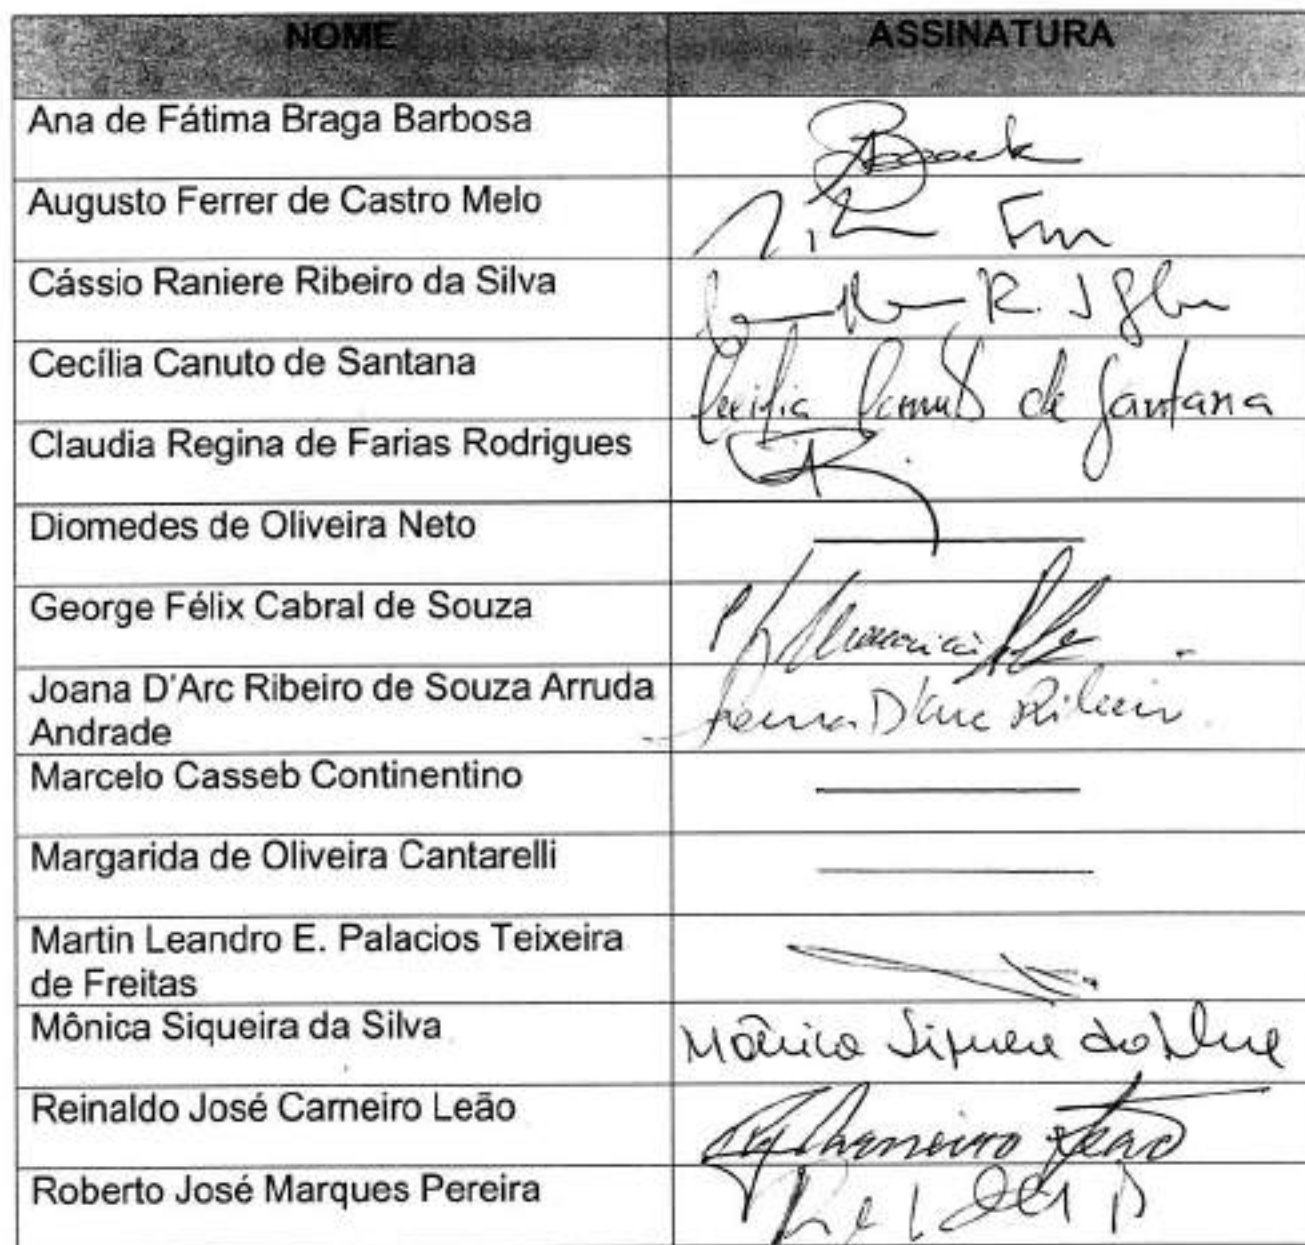 NOME ASSINATURA
Ana de Fátima Braga Barbosa
Augusto Ferrer de Castro Melo
Cássio Raniere Ribeiro da Silva R.
Cecília Canuto de Santana Cecília Canuto de Santana
Claudia Regina de Farias Rodrigues
Diomedes de Oliveira Neto
George Félix Cabral de Souza
Joana D'Arc Ribeiro de Souza Arruda
Andrade Joana D'Arc Ribeiro
Marcelo Casseb Continentino
Margarida de Oliveira Cantarelli
Martin Leandro E. Palacios Teixeira
de Freitas
Mônica Siqueira da Silva Mônica Siqueira da Silva
Reinaldo José Carneiro Leão Carneiro Leão
Roberto José Marques Pereira